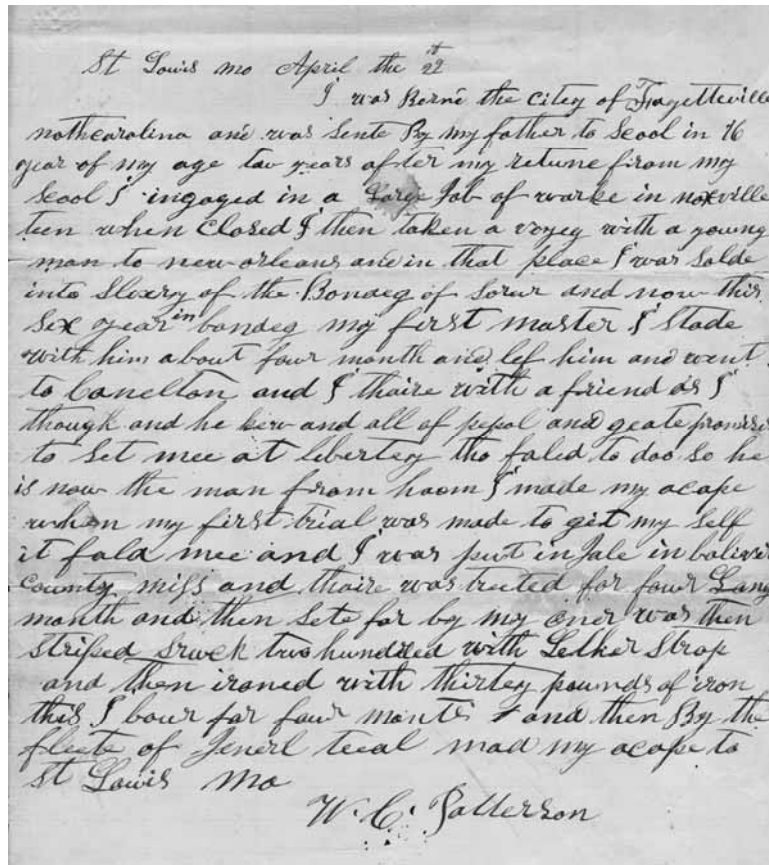 St Lowis mo April the 22th
I was Borne the citey of Fayetteville
nothcarolina and was sente By my father to Scool in 16
year of my age tow years after my retune from my
scool I ingaged in a Large Job of warke in noxville
teen when closed I then taken a voyeg with a young
man to new orleans and in that place I was Solde
into Slevery of the Bondeg of and now this
Sex year in bondeg my first master I stade
with him about four month and lef him and went
to Canelton and I thaire with a friend as I
though and he and all of pepol and geate promised
to Set mee at libertey tho faled to doo so he
is now the man from hoom I made my acape
when my first trial was made to git my self
it fald mee and I was put in Jale in
county miss and thaire was treted for four Lang
month and then Sete for by my oner was then
striped sruck two hundred with Lether Strap
and then ironed with thirtey pounds of iron
this I bour for four months and then By the
fleete of Jenerl teeal mad my acape to
St Lowis Mo
W. C. Patterson